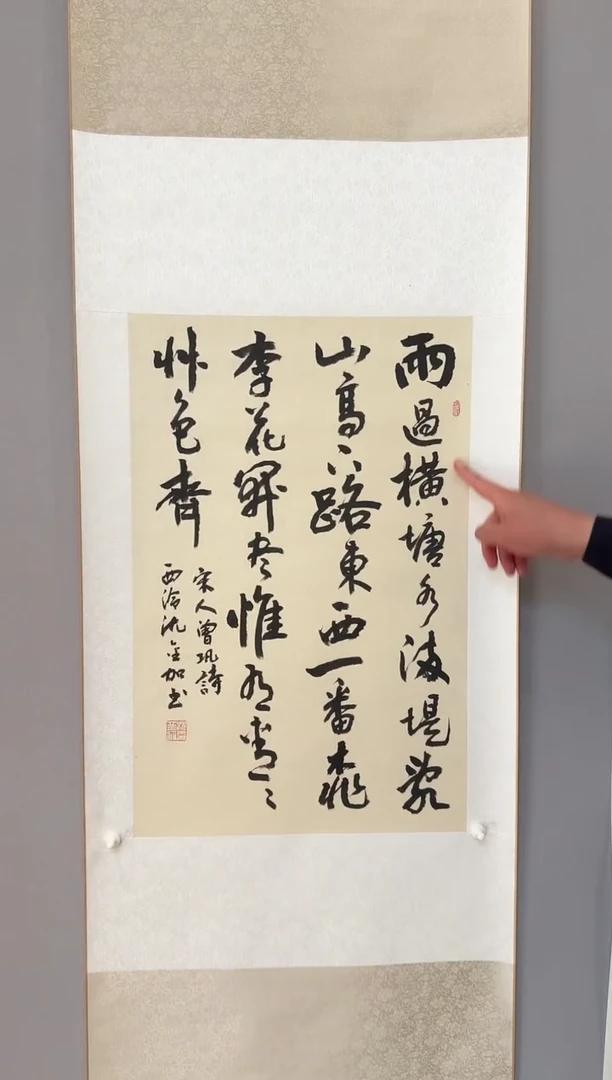 雨過橫塘水滿堤亂
山高下路東西一番桃
李花開盡惟有青々
艸色齊
宋人曾巩詩
西泠沈加书